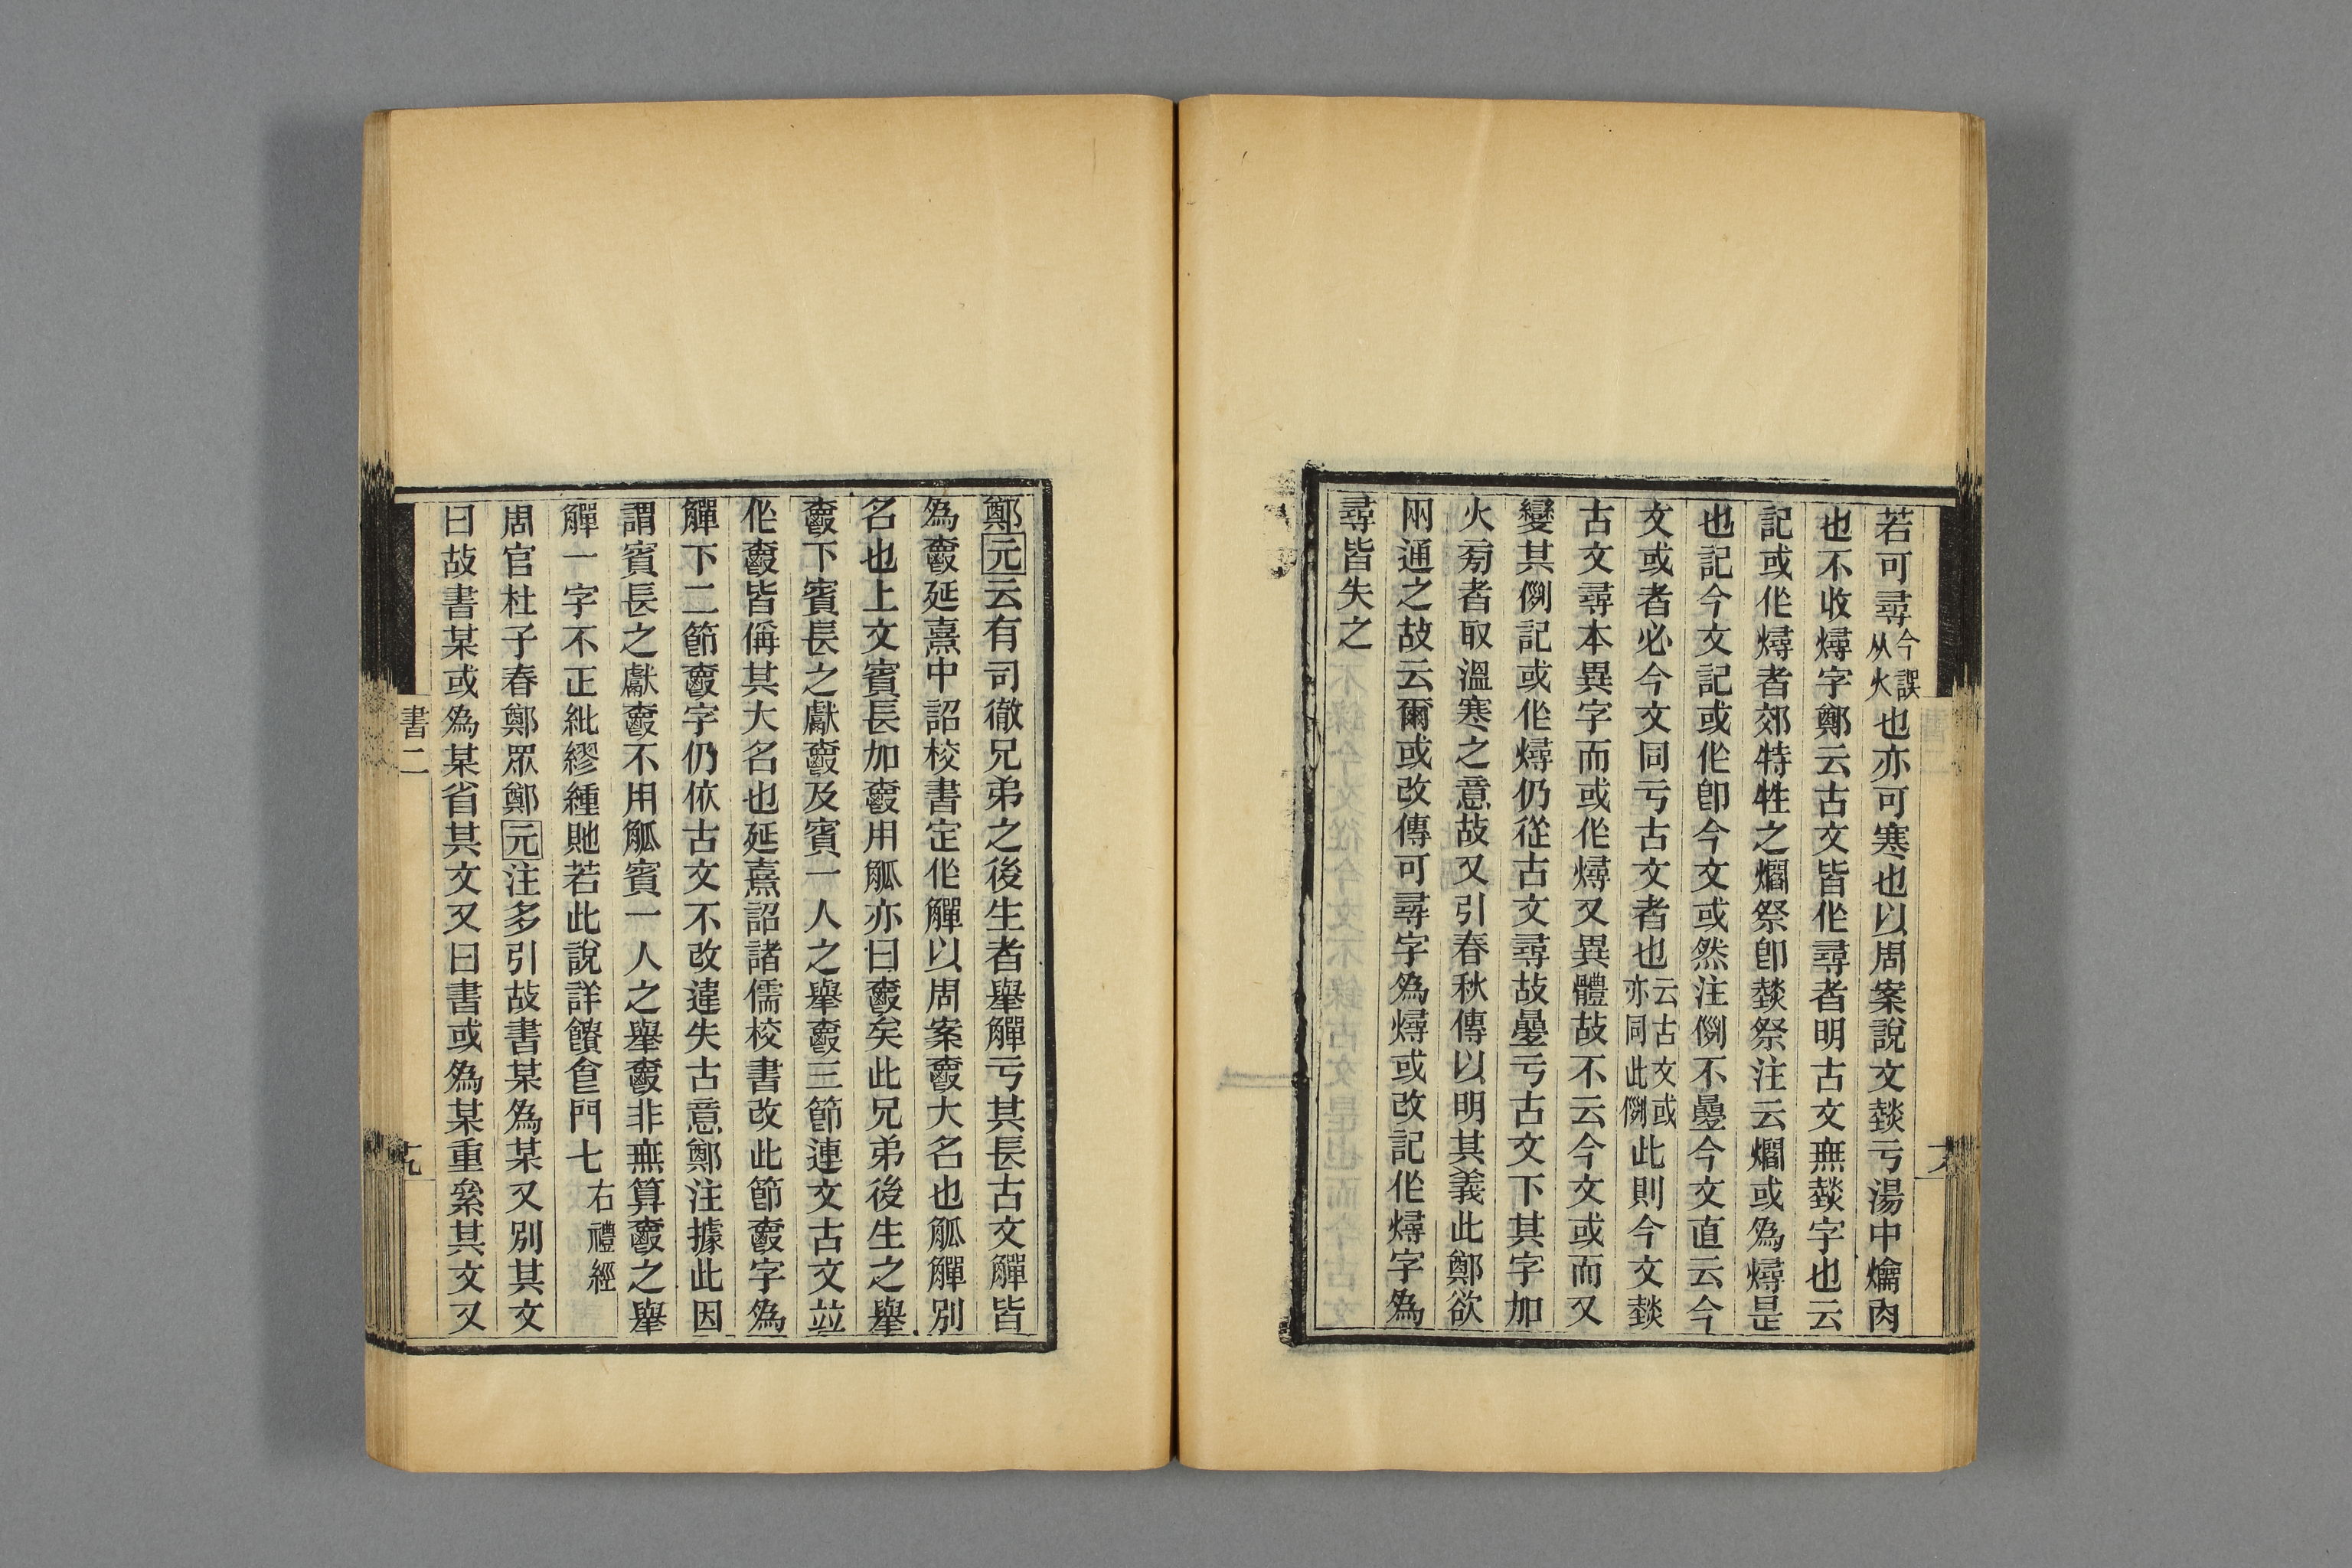 若可尋今誤从火也亦可寒也以周案說文燅亏湯中爚肉
也不收燖字鄭云古文皆作尋者明古文無燅字也云
記或作燖者郊特牲之爓祭卽燅祭注云爓或為燖是
也記今文記或作卽今文或然注例不曡今文直云今
文或者必今文同亏古文者也云古文或亦同此例此則今文燅
古文尋本異字而或作燖又異體故不云今文或而又
變其例記或作燖仍從古文尋故曡亏古文下其字加
火㫄者取溫寒之意故又引春秋傳以明其義此鄭欲
兩通之故云爾或改傳可尋字為燖或改記作燖字為
尋皆失之
鄭元云有司徹兄弟之後生者舉觶亏其長古文觶皆
為爵延熹中詔校書定作觶以周案爵大名也觚觶別
名也上文賓長加爵用觚亦曰爵矣此兄弟後生之舉
爵下賓長之獻爵及賓一人之舉爵三節連文古文竝
作爵皆偁其大名也延熹詔諸儒校書改此節爵字為
觶下二節爵字仍依古文不改違失古意鄭注據此因
謂賓長之獻爵不用觚賓一人之舉爵非無算爵之舉
觶一字不正紕繆緟貤若此說詳饋食門七右禮經
周官杜子春鄭眾鄭元注多引故書某為某又別其文
曰故書某或為某省其文又曰書或為某重絫其文又
書二
十九